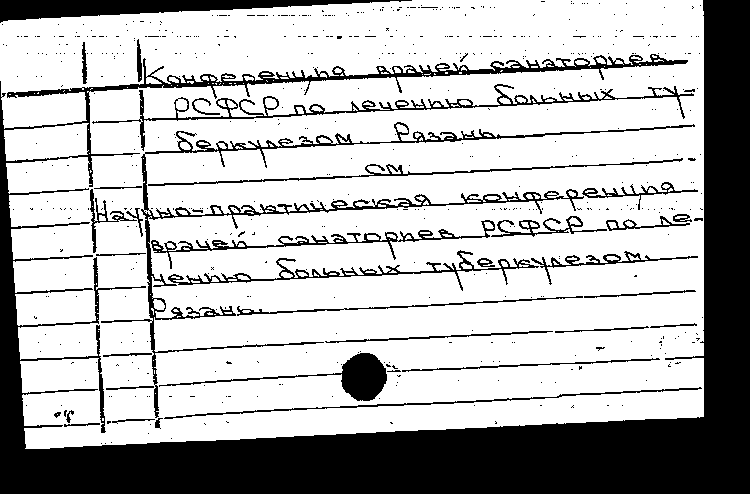 Конференция врачей санаториев
РСФСР по лечению больных ту-
беркулезом. Рязань.
см.
Научно-практическая конференция
врачей санаториев РСФСР по ле-
чению больных туберкулезом.
Рязань.